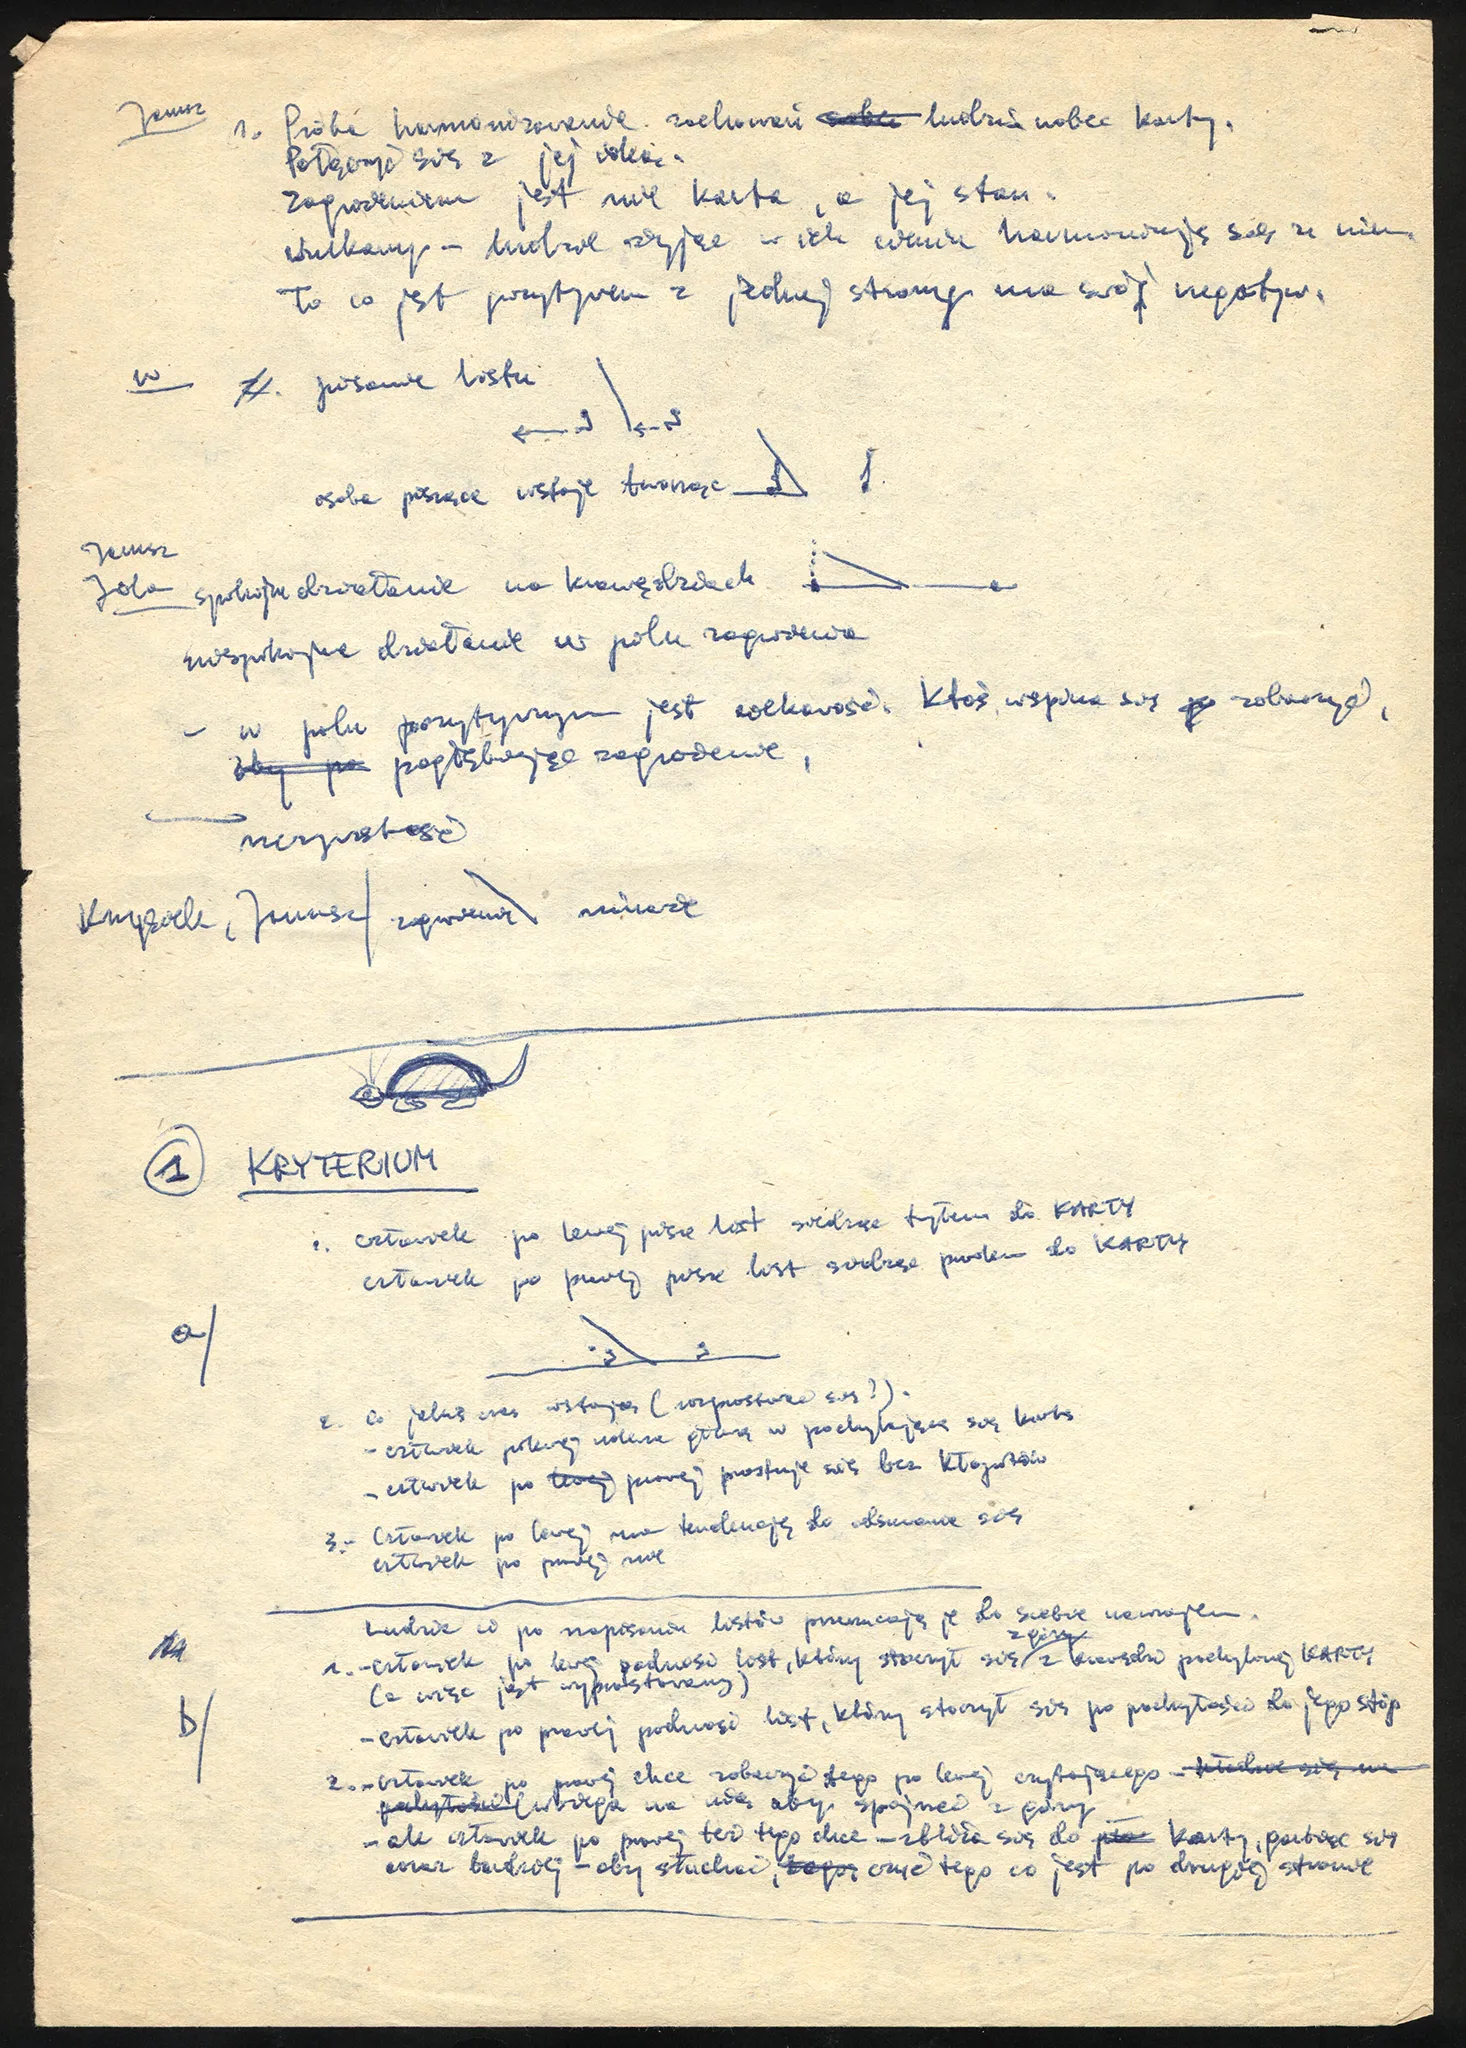 Janusz 1. Próba harmonizowania zachowań ludzi wobec karty.
Połączyć się z jej
Zagrożeniem jest nie karta, a jej stan.
ludzie żyjąc w ich harmonizują się z nim.
To co jest pozytywem z jednej strony ma swój negatyw.
W pisanie listu
osoba pisząca wstaje tworząc
Janusz
Jola spokojne działanie na krawędziach
niespokojne działanie w polu zagrożenia
- w polu pozytywnym jest ciekawość. Ktoś wspina się zobaczyć,
pogłębiając zagrożenie,
Janusz zagrożenie
1 KRYTERIUM
1. człowiek po lewej pisze list siedząc tyłem do KARTY
człowiek po prawej pisze list siedząc przodem do KARTY
a/
2. Co jakiś czas wstają (rozprostować się?).
- człowiek po lewej uderza głową w pochylającą się kartę
- człowiek po lewej prawej prostuje się bez kłopotów
3. - Człowiek po lewej ma tendencję do odsuwania się
człowiek po prawej nie
Ludzie ci po napisaniu listów przerzucają je do siebie nawzajem.
1. - człowiek po lewej podnosi list, który stoczył się z góry z krawędzi pochylonej KARTY
(a więc jest wyprostowany)
b/
- człowiek po prawej podnosi list, który stoczył się po pochyłości do jego stóp
2. - człowiek po prawej chce zobaczyć tego po lewej czytającego
(wbiega na nią aby spojrzeć z góry
- ale człowiek po prawej też tego chce - zbliża się do karty, garbiąc się
coraz bardziej - aby słuchać, czuć tego co jest po drugiej stronie